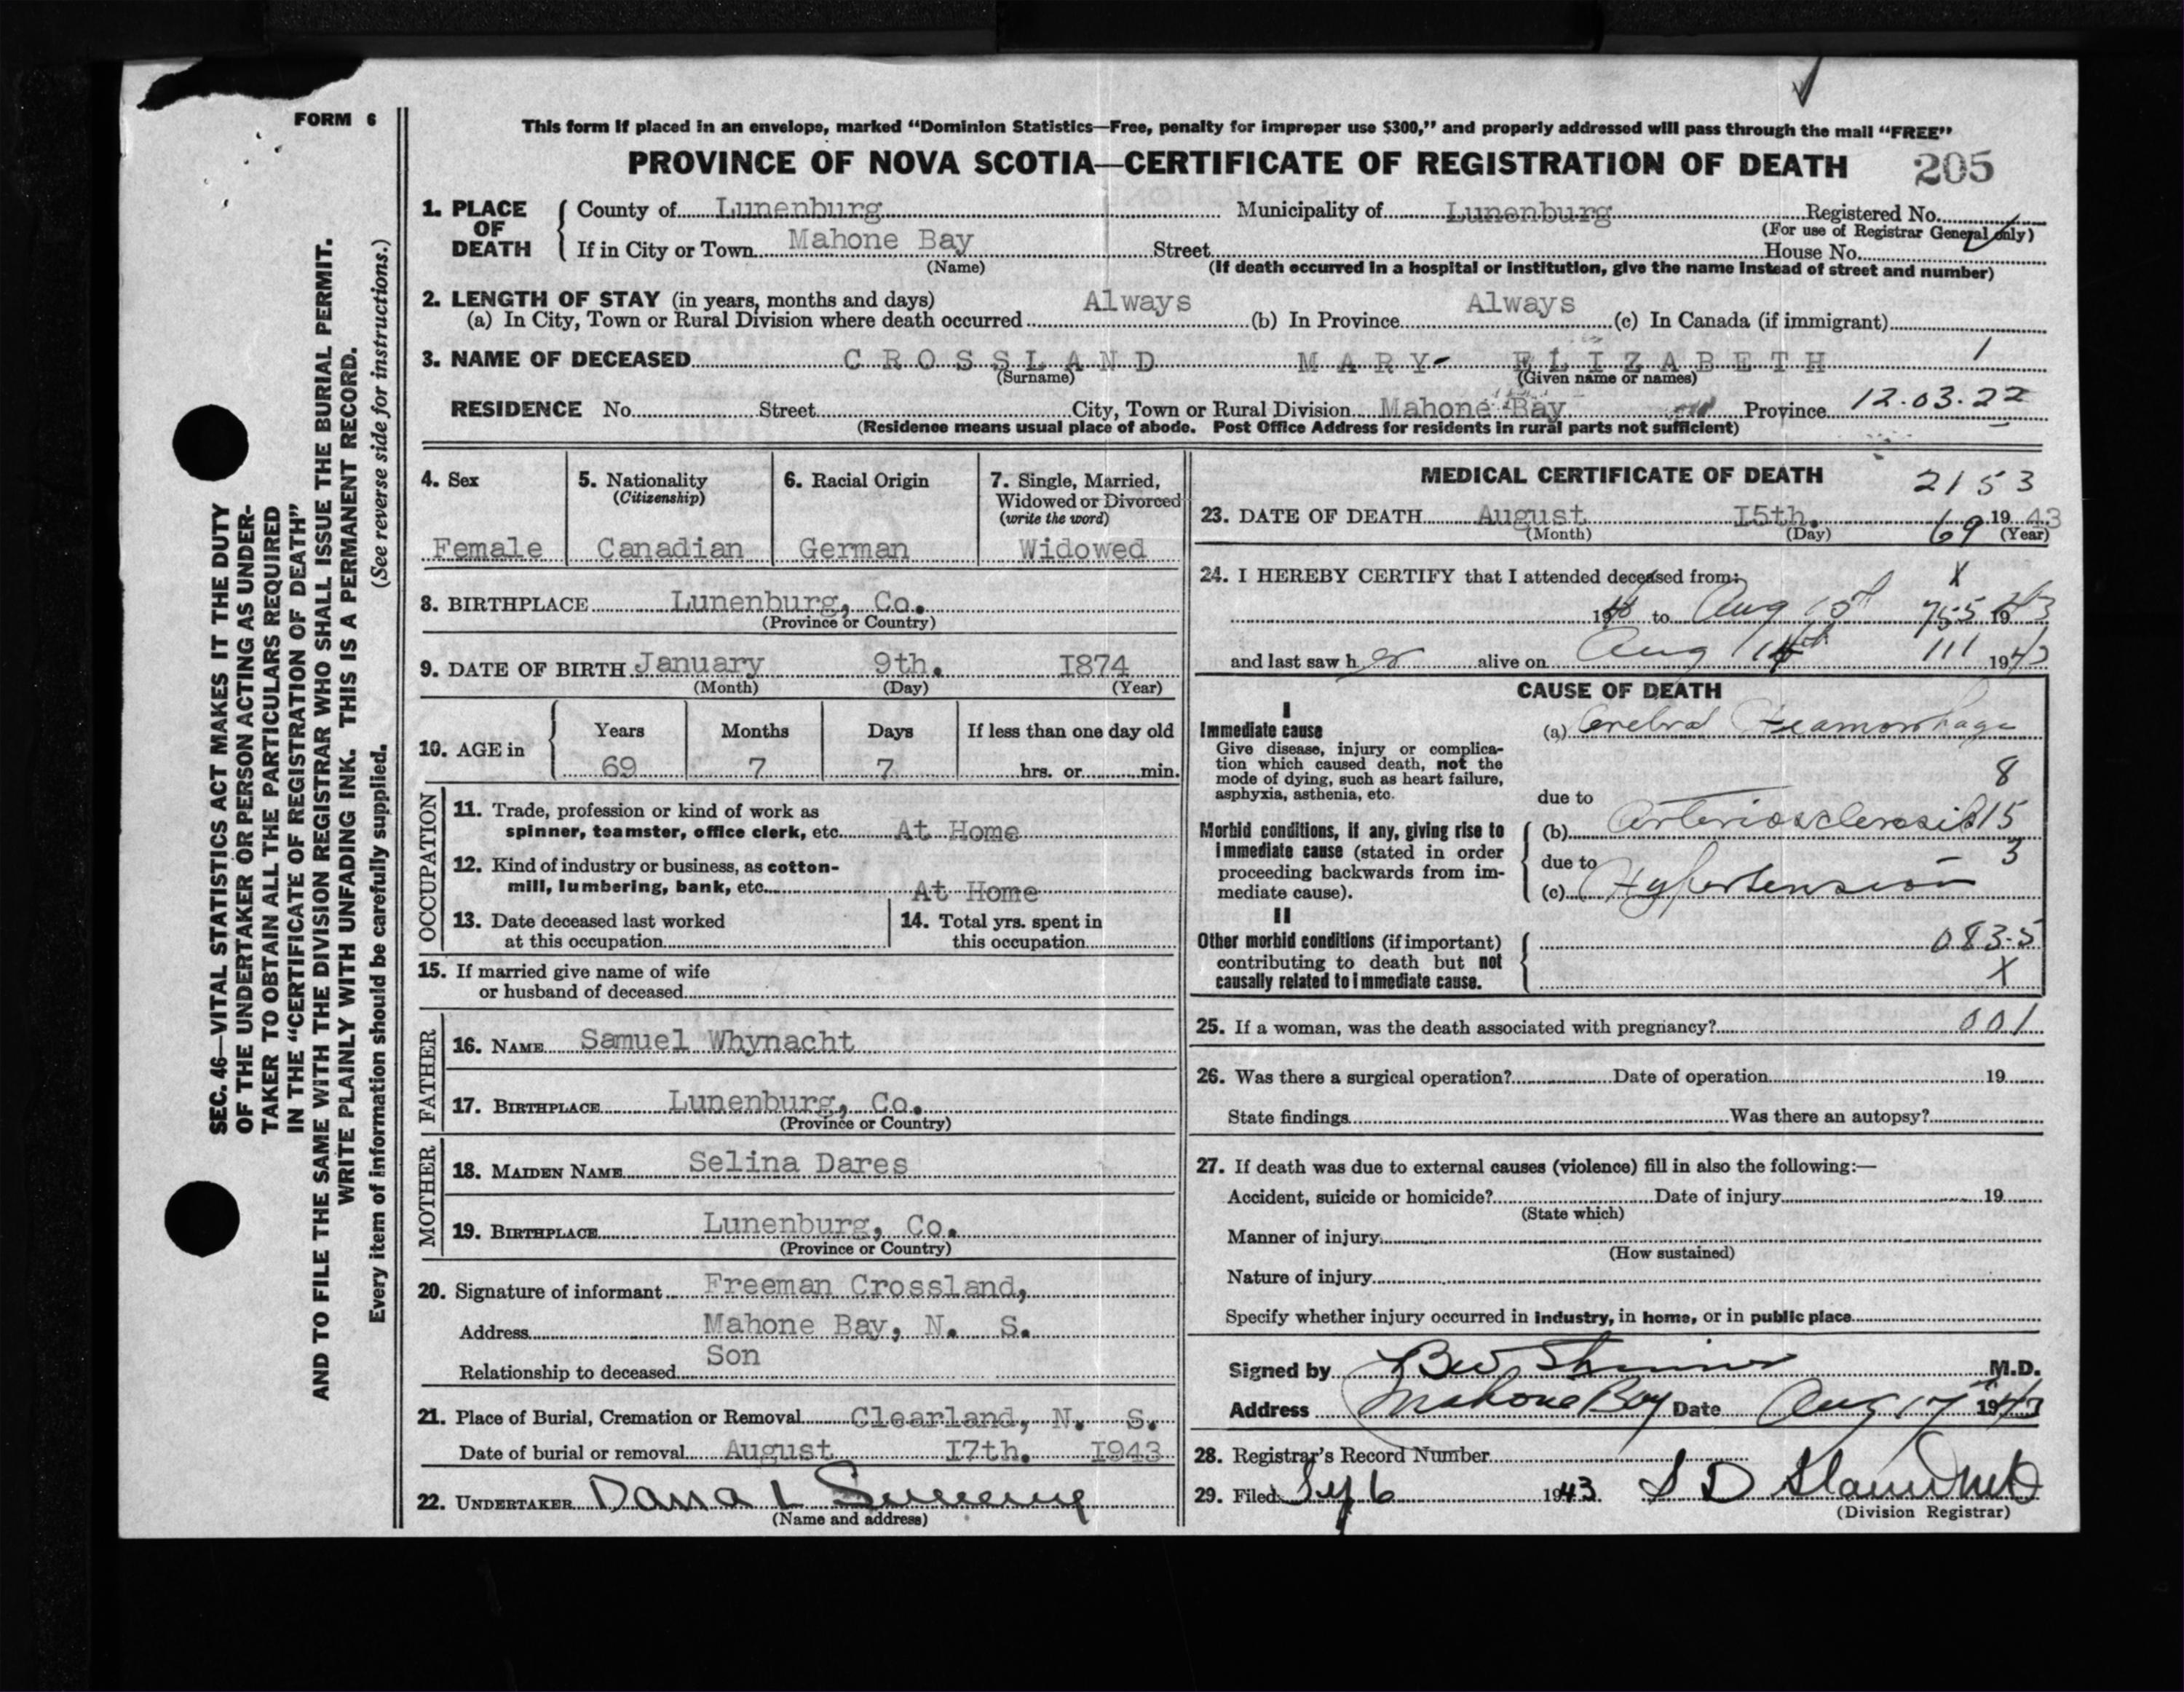 FORM 6
SEC. 46—VITAL STATISTICS ACT MAKES IT THE DUTY
OF THE UNDERTAKER OR PERSON ACTING AS UNDER-
TAKER TO OBTAIN ALL THE PARTICULARS REQUIRED
IN THE "CERTIFICATE OF REGISTRATION OF DEATH"
AND TO FILE THE SAME WITH THE DIVISION REGISTRAR WHO SHALL ISSUE THE BURIAL PERMIT.
WRITE PLAINLY WITH UNFADING INK. THIS IS A PERMANENT RECORD.
Every item of information should be carefully supplied. (See reverse side for instructions.)
This form if placed in an envelope, marked "Dominion Statistics—Free, penalty for improper use $300," and properly addressed will pass through the mail "FREE"
PROVINCE OF NOVA SCOTIA—CERTIFICATE OF REGISTRATION OF DEATH 205
1. PLACE OF DEATH
County of Lunenburg Municipality of Lunenburg Registered No.
(For use of Registrar General only)
If in City or Town Mahone Bay Street House No.
(Name) (If death occurred in a hospital or institution, give the name instead of street and number)
2. LENGTH OF STAY (in years, months and days)
(a) In City, Town or Rural Division where death occurred Always (b) In Province Always (c) In Canada (if immigrant)
3. NAME OF DECEASED CROSSLAND MARY- ELIZABETH 1
(Surname) (Given name or names)
RESIDENCE No. Street City, Town or Rural Division Mahone Bay Province 12.03.22
(Residence means usual place of abode. Post Office Address for residents in rural parts not sufficient)
4. Sex
Female
5. Nationality
(Citizenship)
Canadian
6. Racial Origin
German
7. Single, Married,
Widowed or Divorced
(write the word)
Widowed
8. BIRTHPLACE Lunenburg, Co.
(Province or Country)
9. DATE OF BIRTH January 9th. I874
(Month) (Day) (Year)
10. AGE in
Years Months Days If less than one day old
69 7 7 hrs. or min.
OCCUPATION
11. Trade, profession or kind of work as
spinner, teamster, office clerk, etc. At Home
12. Kind of industry or business, as cotton-
mill, lumbering, bank, etc. At Home
13. Date deceased last worked
at this occupation
14. Total yrs. spent in
this occupation
15. If married give name of wife
or husband of deceased
FATHER
16. NAME Samuel Whynacht
17. BIRTHPLACE Lunenburg, Co.
(Province or Country)
MOTHER
18. MAIDEN NAME Selina Dares
19. BIRTHPLACE Lunenburg, Co.
(Province or Country)
20. Signature of informant Freeman Crossland,
Address Mahone Bay, N. S.
Relationship to deceased Son
21. Place of Burial, Cremation or Removal Clearland, N. S.
Date of burial or removal August I7th. I943
22. UNDERTAKER Dana L
(Name and address)
MEDICAL CERTIFICATE OF DEATH 2153
23. DATE OF DEATH August I5th. 69 1943
(Month) (Day) (Year)
24. I HEREBY CERTIFY that I attended deceased from: X
19 to Aug 15th 75-5 1943
and last saw her alive on Aug 14th 111 1943
CAUSE OF DEATH
I
Immediate cause
Give disease, injury or complica-
tion which caused death, not the
mode of dying, such as heart failure,
asphyxia, asthenia, etc.
(a) Cerebral Heamorrhage
8
due to
Morbid conditions, if any, giving rise to
immediate cause (stated in order
proceeding backwards from im-
mediate cause).
(b) Arteriosclerosis 15
due to 3
(c) Hypertension
II
Other morbid conditions (if important)
contributing to death but not
causally related to immediate cause.
083-5
X
25. If a woman, was the death associated with pregnancy? 001
26. Was there a surgical operation? Date of operation 19
State findings Was there an autopsy?
27. If death was due to external causes (violence) fill in also the following:—
Accident, suicide or homicide? Date of injury 19
(State which)
Manner of injury
(How sustained)
Nature of injury
Specify whether injury occurred in industry, in home, or in public place
Signed by M.D.
Address Mahone Bay Date Aug 17th 1943
28. Registrar's Record Number
29. Filed Sep 6 1943 S D
(Division Registrar)